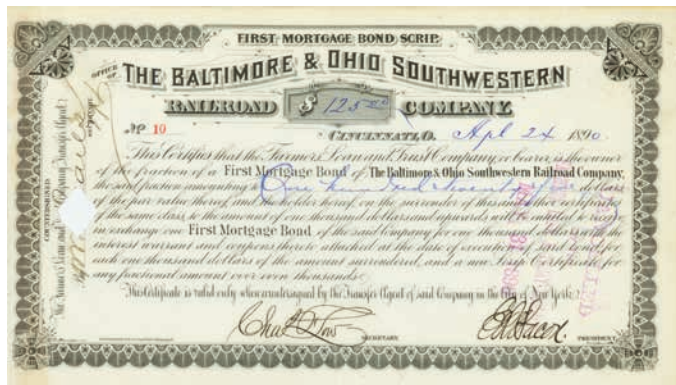 FIRST MORTGAGE BOND SCRIP.
OFFICE OF
THE BALTIMORE & OHIO SOUTHWESTERN
RAILROAD $ 125.00 COMPANY.
No 10
CINCINNATI, O. Apl 24 1890
This Certifies that the Farmers Loan and Trust Company or bearer, is the owner
of the fraction of a First Mortgage Bond of The Baltimore & Ohio Southwestern Railroad Company,
the said fraction amounting to One hundred & twenty five dollars
of the par value thereof, and the holder hereof, on the surrender of this and other certificates
of the same class, to the amount of one thousand dollars and upwards will be entitled to receive
in exchange one First Mortgage Bond of the said Company for one thousand dollars with the
interest warrant and coupons thereto attached at the date of execution of said bond, for
each one thousand dollars of the amount surrendered, and a new Scrip Certificate for
any fractional amount over even thousands.
This Certificate is valid only when countersigned by the Transfer Agent of said Company in the City of New York.
SECRETARY
PRESIDENT
COUNTERSIGNED